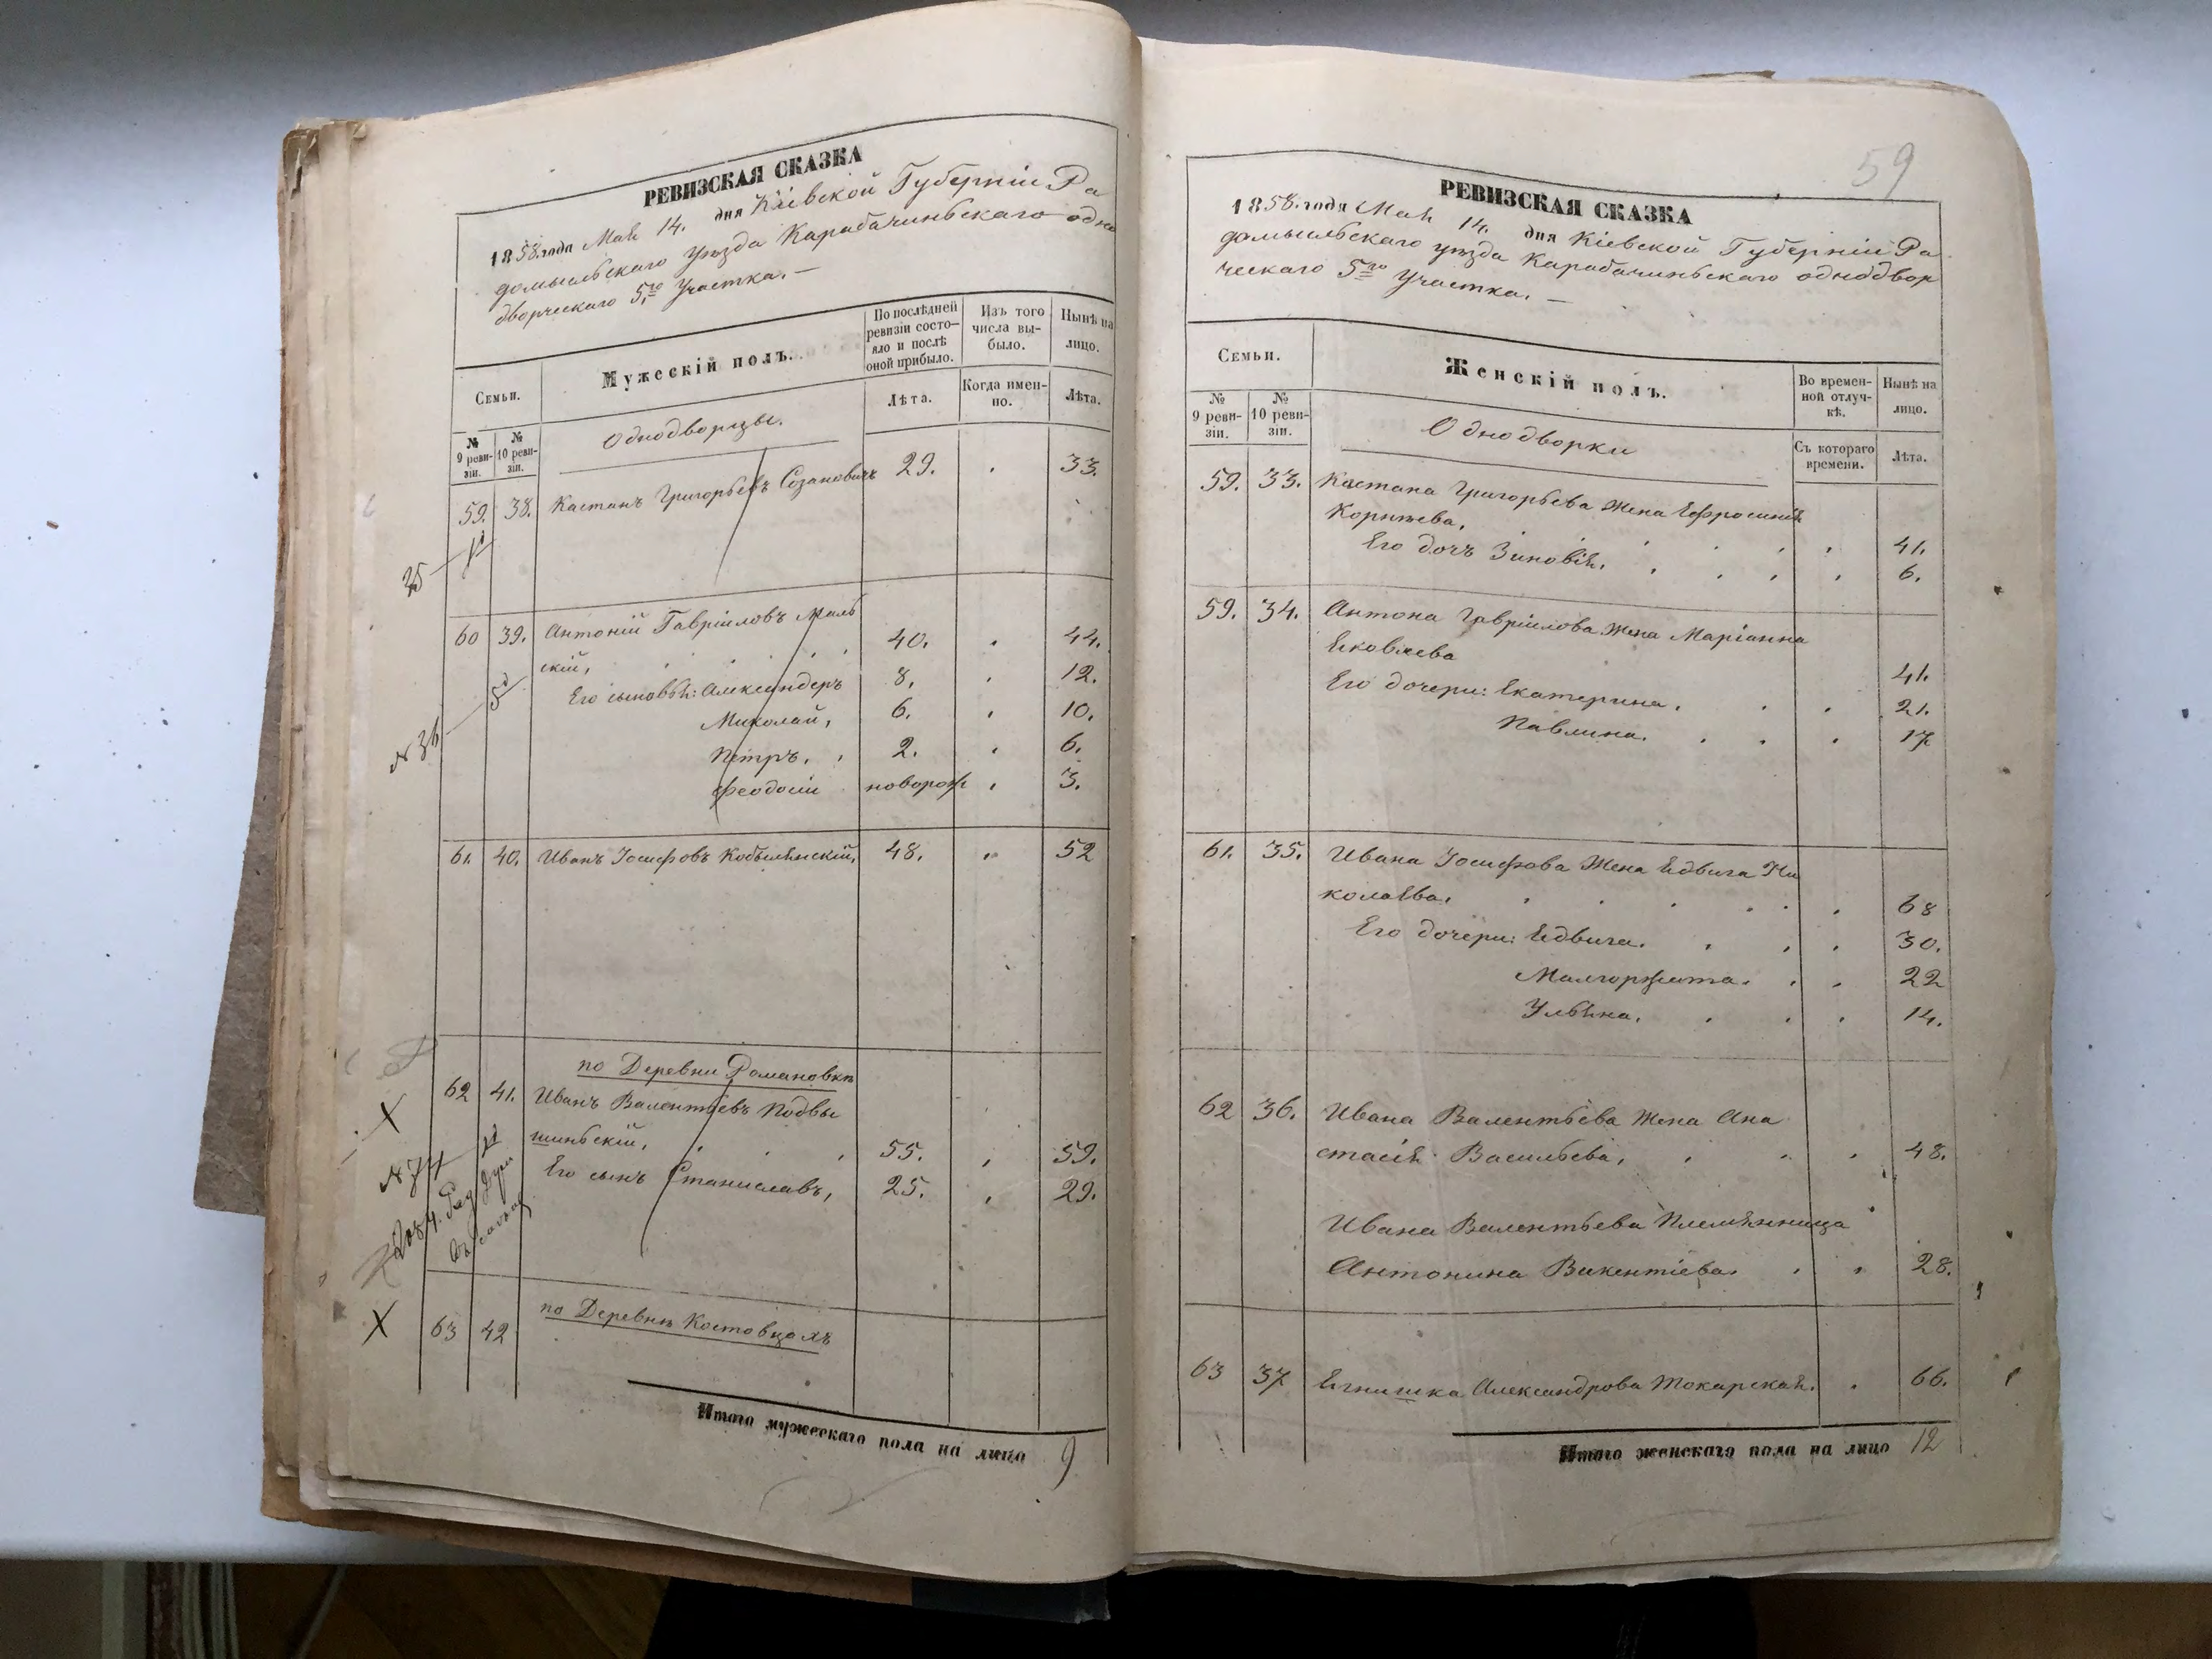 РЕВИЗСКАЯ СКАЗКА
1858 года Маія 14. дня Кіевской Губерніи Ра
домысльскаго уѣзда Карабачинскаго одно
дворческаго 5го Участка. —
Семьи.
Мужескій полъ.
По послѣдней ревизіи состояло и послѣ оной прибыло.
Изъ того числа выбыло.
Нынѣ на лицо.
№ 9 ревизіи.
№ 10 ревизіи.
Однодворцы.
Лѣта.
Когда именно.
Лѣта.
59. 38. Каетанъ Григорьевъ Созановичъ 29. 33.
35
60 39. Антоній Гавріиловъ Маль
скій, 40. 44.
Его сыновья: Александеръ 8. 12.
Миколай, 6. 10.
Петръ, 2. 6.
Феодосій новорож 3.
№ 36
61. 40. Иванъ Іосифовъ Кобылянскій, 48. 52
по Деревни Романовкѣ
62 41. Иванъ Валентьевъ Подвы
шинскій, 55. 59.
Его сынъ Станиславъ, 25. 29.
X
X 63 42 по Деревнѣ Костовцахъ
Итого мужескаго пола на лицо 9
59
РЕВИЗСКАЯ СКАЗКА
1858. года Маія 14. дня Кіевской Губерніи Ра
домысльскаго уѣзда Карабачинскаго однодвор
ческаго 5го Участка. —
Семьи.
Женскій полъ.
Во временной отлучкѣ.
Нынѣ на лицо.
№ 9 ревизіи.
№ 10 ревизіи.
Однодворки
Съ котораго времени.
Лѣта.
59. 33. Каетана Григорьева Жена Ефросинія
Корнѣева, 41.
Его дочъ Зиновія. 6.
59. 34. Антона Гавріилова Жена Маріанна
Яковлева 41.
Его дочери: Екатерина. 21.
Павлина. 17
61. 35. Ивана Іосифова Жена Ядвига Ни
колаева. 68
Его дочери: Ядвига. 30.
Малгоржата. 22
Ульяна. 14.
62 36. Ивана Валентьева Жена Ана
стасія Васильева, 48.
Ивана Валентьева Племянница
Антонина Викентіева. 28.
63 37 Ягнишка Александрова Токарская. 66.
Итого женскаго пола на лицо 12